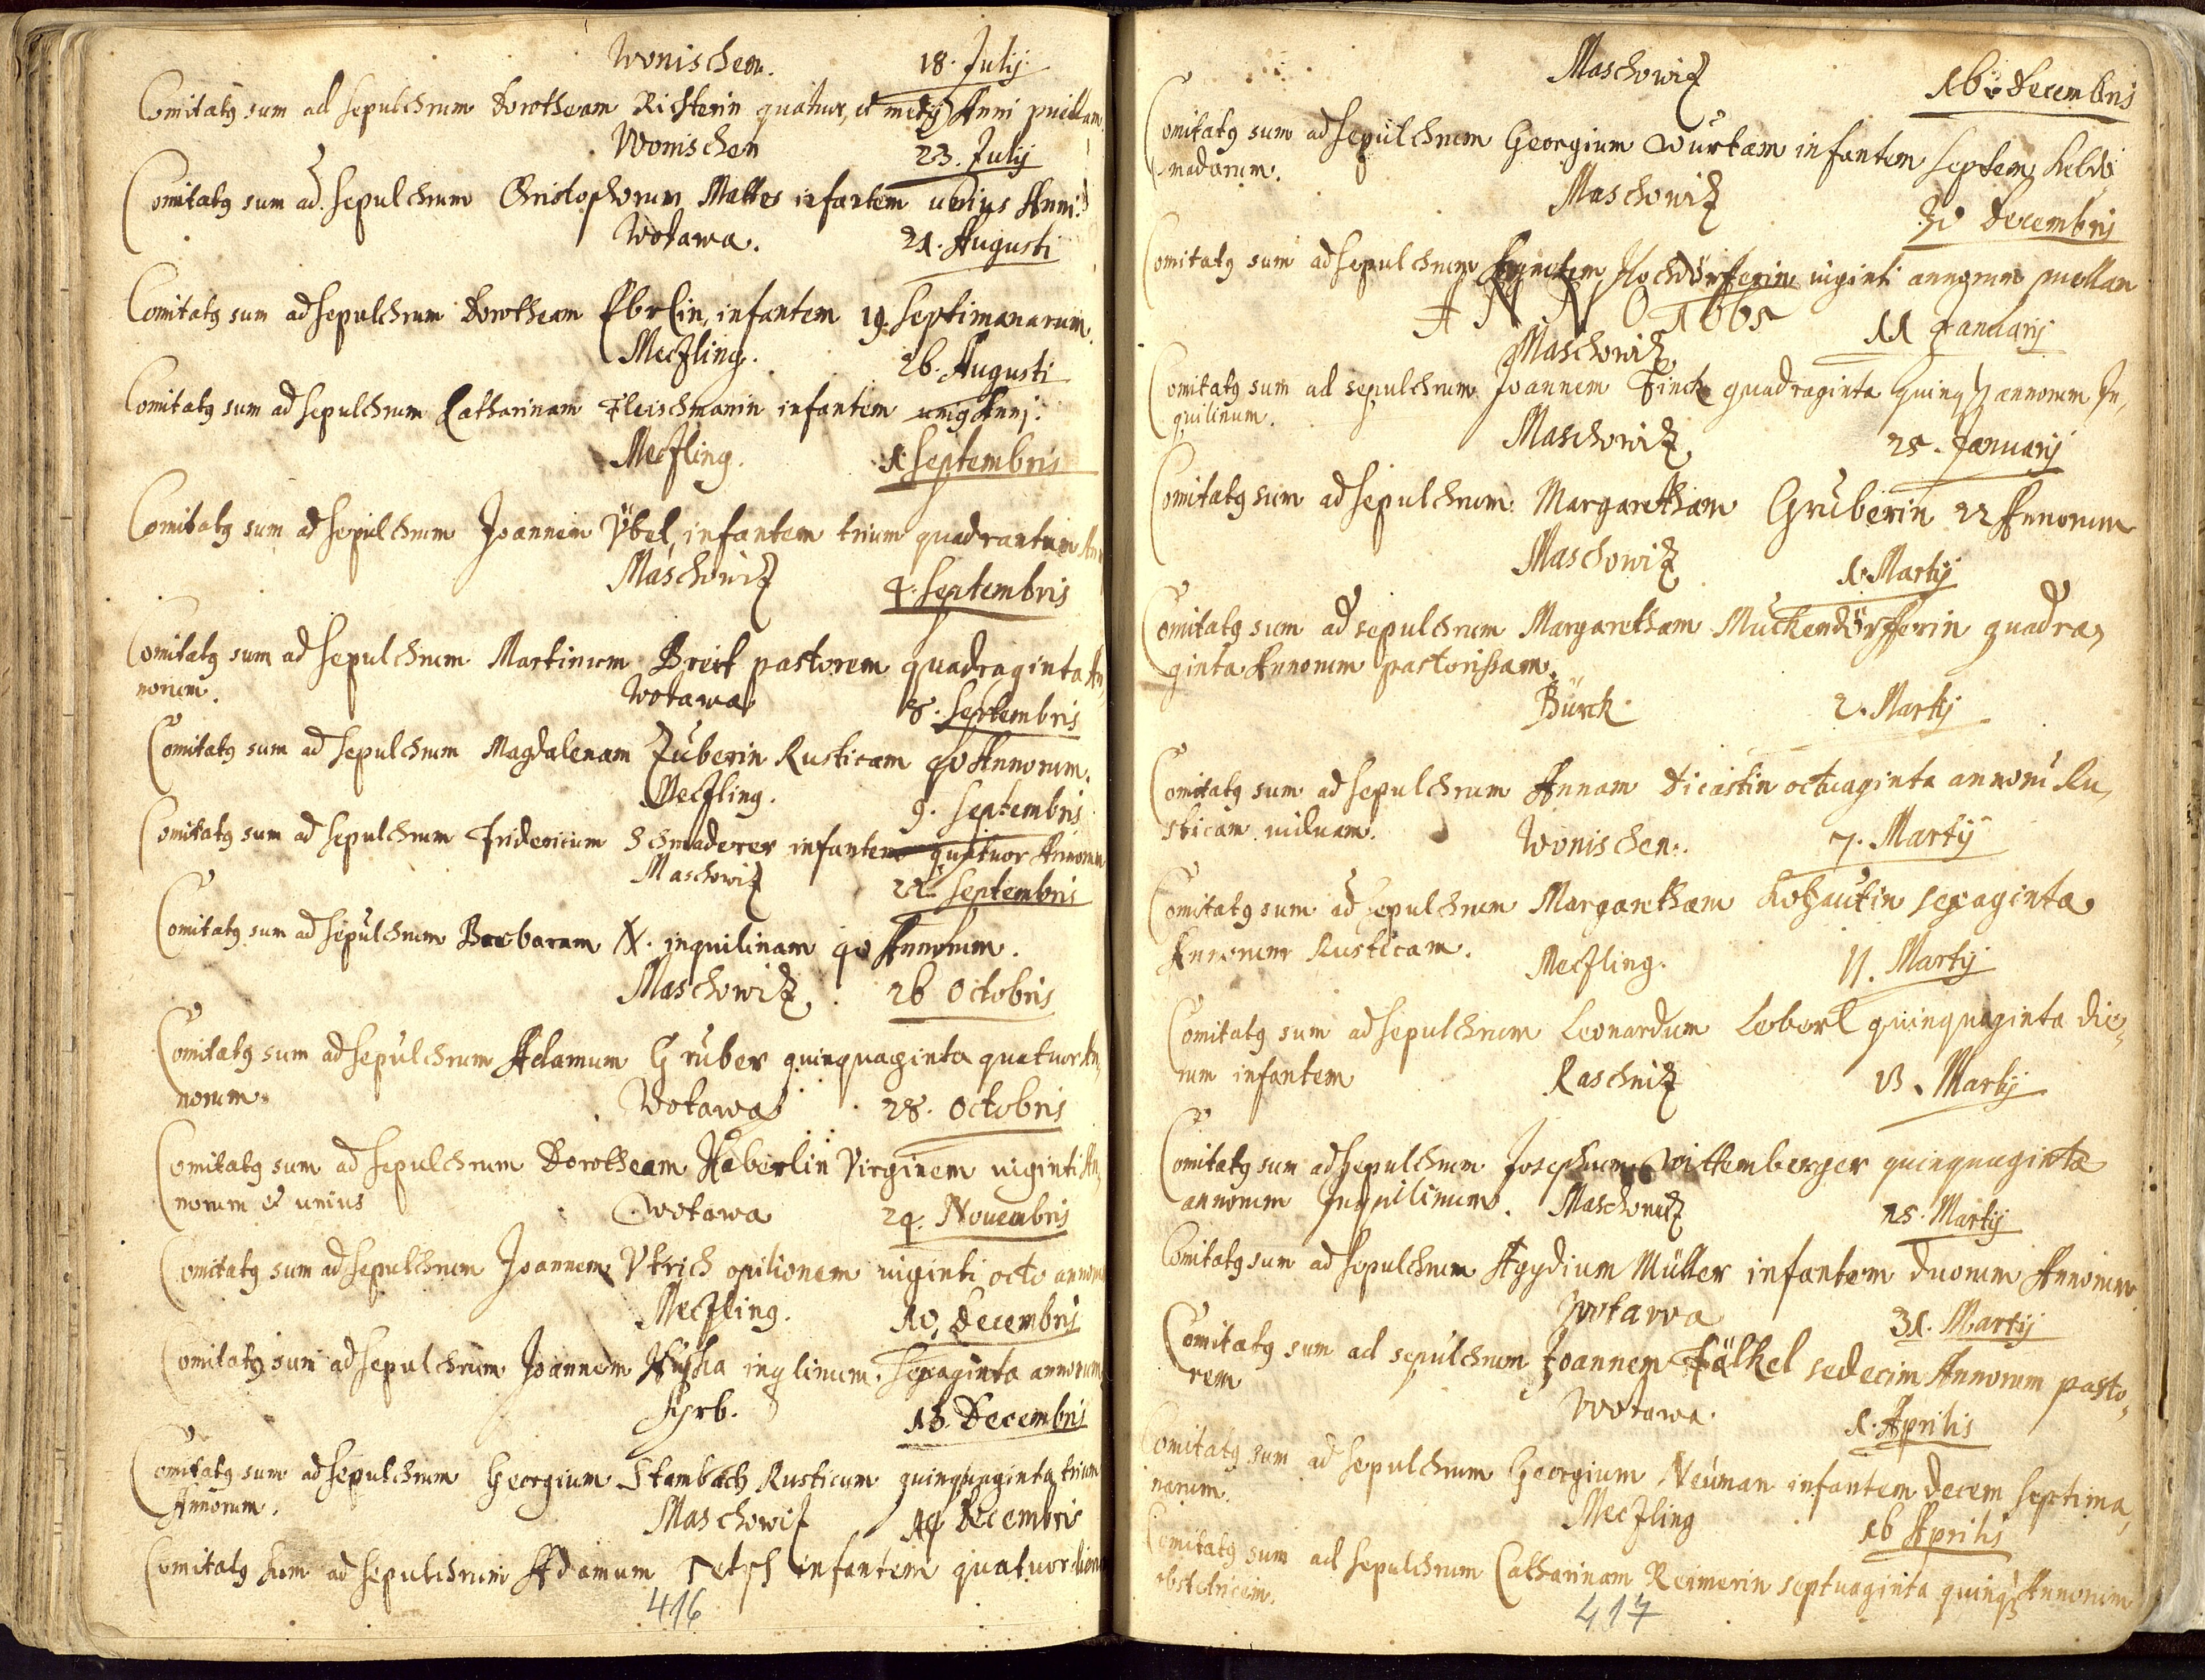 Wonischen. 18. Julij
Comitatg sum ad sepulchrum Dorotheam Richterin quatuor, et medij Anni puellam.
Wonischen 23. Julij
Comitatg sum ad sepulchrum Christophorum Mattes infantem unius Anni.
Wotawa. 21. Augusti
Comitatg sum ad sepulchrum Dorotheam Eberlin, infantem 19. septimanarum.
Meczling. 26. Augusti
Comitatg sum ad sepulchrum Catharinam Fleischmanin infantem unig Anni.
Meczling. 1. Septembris
Comitatg sum ad sepulchrum Joannem Ybel, infantem trium quadrantum
Maschowitz 4. Septembris
Comitatg sum ad sepulchrum Martinum Breit pastorem quadraginta An,
norum.
Wotawa 8. Septembris
Comitatg sum ad sepulchrum Magdalenam Zuberin Rusticam 40 Annorum.
Meczling. 9. Septembris
Comitatg sum ad sepulchrum Fridericum Schmaderer infantem quatuor Annorum
Maschowitz 22. Septembris
Comitatg sum ad sepulchrum Barbaram N. inquilinam 40 Annorum.
Maschowitz 26 Octobris
Comitatg sum ad sepulchrum Adamum Gruber quinquaginta quatuor An,
norum.
Wotawa 28. Octobris
Comitatg sum ad sepulchrum Dorotheam Haberlin Virginem uiginti An,
norum et unius
Wotawa 24. Nouembris
Comitatg sum ad sepulchrum Joannem Vtrich opilionem uiginti octo annorum
Meczling. 10. Decembris
Comitatg sum ad sepulchrum Joannem inqlinum. sexaginta annorum
13. Decembris
Comitatg sum ad sepulchrum Georgium Stambach Rusticum quinquaginta trium
Annorum.
Maschowitz 14 Decembris
Comitatg sum ad sepulchrum Adamum infantem quatuor dierum
416
Maschowitz 16. Decembris
Comitatg sum ad sepulchrum Georgium Wurtam infantem septem hebdo
madarum.
Maschowitz 30 Decembris
Comitatg sum ad sepulchrum Hochdörfferin uiginti annorum puellam
ANNO 1665
Maschowitz 11 Januarij
Comitatg sum ad sepulchrum Joannem Finck quadraginta quinqz annorum In,
quilinum.
Maschowitz 25. Januarij
Comitatg sum ad sepulchrum Margaretham Gruberin 22 Annorum
Maschowitz 1. Martij
Comitatg sum ad sepulchrum Margaretham Muckendörfferin quadra,
ginta Annorum pastorissam.
Bürck 2. Martij
Comitatg sum ad sepulchrum Annam Dicastin octuaginta annorū Ru,
sticam uiduam.
Wonischen. 7. Martij
Comitatg sum ad sepulchrum Margaretham Kohautin sexaginta
Annorum Rusticam.
Meczling. 11. Martij
Comitatg sum ad sepulchrum Leonardum Loberl quinquaginta die,
rum infantem
Raschnitz 13. Martij
Comitatg sum ad sepulchrum Josephum Wittemberger quinquaginta
annorum Inquilinum. Maschowitz 25. Martij
Comitatg sum ad sepulchrum Agydium Müller infantem duorum Annorum.
Wotawa 31. Martij
Comitatg sum ad sepulchrum Joannem Fälkel sedecim Annorum pasto,
rem
Wotawa. 1. Aprilis
Comitatg sum ad sepulchrum Georgium Neuman infantem decem septima,
narum.
Meczling 16 Aprilis
Comitatg sum ad sepulchrum Catharinam Reimerin septuaginta quinqz Annorum
obstetricem.
417